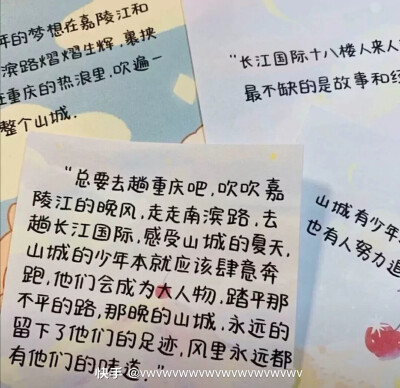 年的梦想在嘉陵江和
滨路熠熠生辉,裹挟
在重庆的热浪里,吹遍一
整个山城.
"长江国际十八楼人来人
最不缺的是故事和
山城有少年
也有人努力追
"总要去趟重庆吧,吹吹嘉
陵江的晚风,走走南滨路,去
趟长江国际,感受山城的夏天,
山城的少年本就应该肆意奔
跑,他们会成为大人物,踏平那
不平的路,那晚的山城,永远的
留下了他们的足迹,风里永远都
有他们的味道."
快手